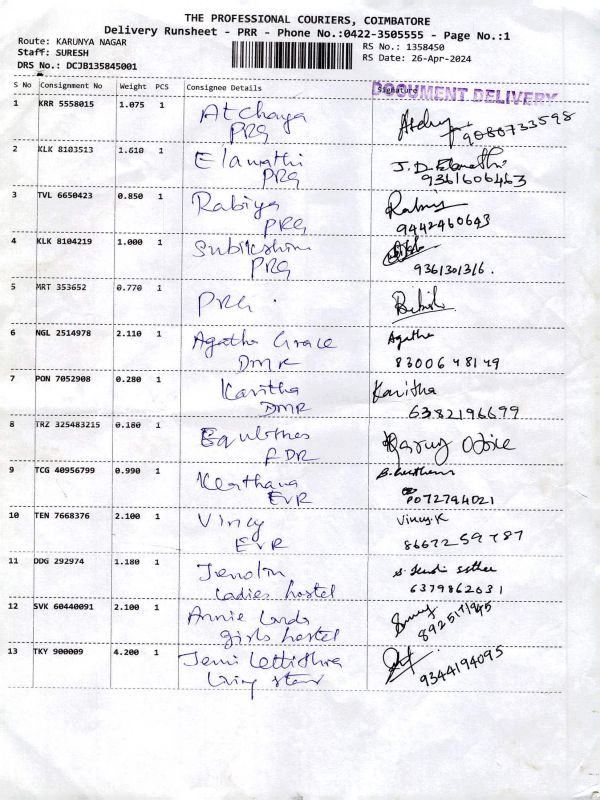 THE PROFESSIONAL COURIERS, COIMBATORE
Delivery Runsheet - PRR - Phone No.:0422-3505555 - Page No.:1
Route: KARUNYA NAGAR
Staff: SURESH
DRS No.: DCJB135845001
RS No.: 1358450
RS Date: 26-Apr-2024
S No Consignment No Weight PCS Consignee Details Signature
DOCUMENT DELIVERY
1 KRR 5558015 1.075 1 Atchaya
PRG
9080733598
2 KLK 8103513 1.610 1 Elamathi J.D.
PRG 9361606463
3 TVL 6650423 0.850 1 Rabiya
PRG 9442460643
4 KLK 8104219 1.000 1
PRG 9361301316.
5 MRT 353652 0.770 1 PRG.
6 NGL 2514978 2.110 1 Agatha Grace Agatha
DMR 8300648149
7 PON 7052908 0.280 1 Kavitha Kavitha
DMR 6382196699
8 TRZ 325483215 0.180 1
9 TCG 40956799 0.990 1 Keerthana
EVR 072794021
10 TEN 7668376 2.100 1 Vincy Vincy.K
EVR 8667259787
11 DDG 292974 1.180 1
Ladies hostel 6379862631
12 SVK 60440091 2.100 1 Annie
girls hostel
13 TKY 900009 4.200 1 Jemi
9344194095